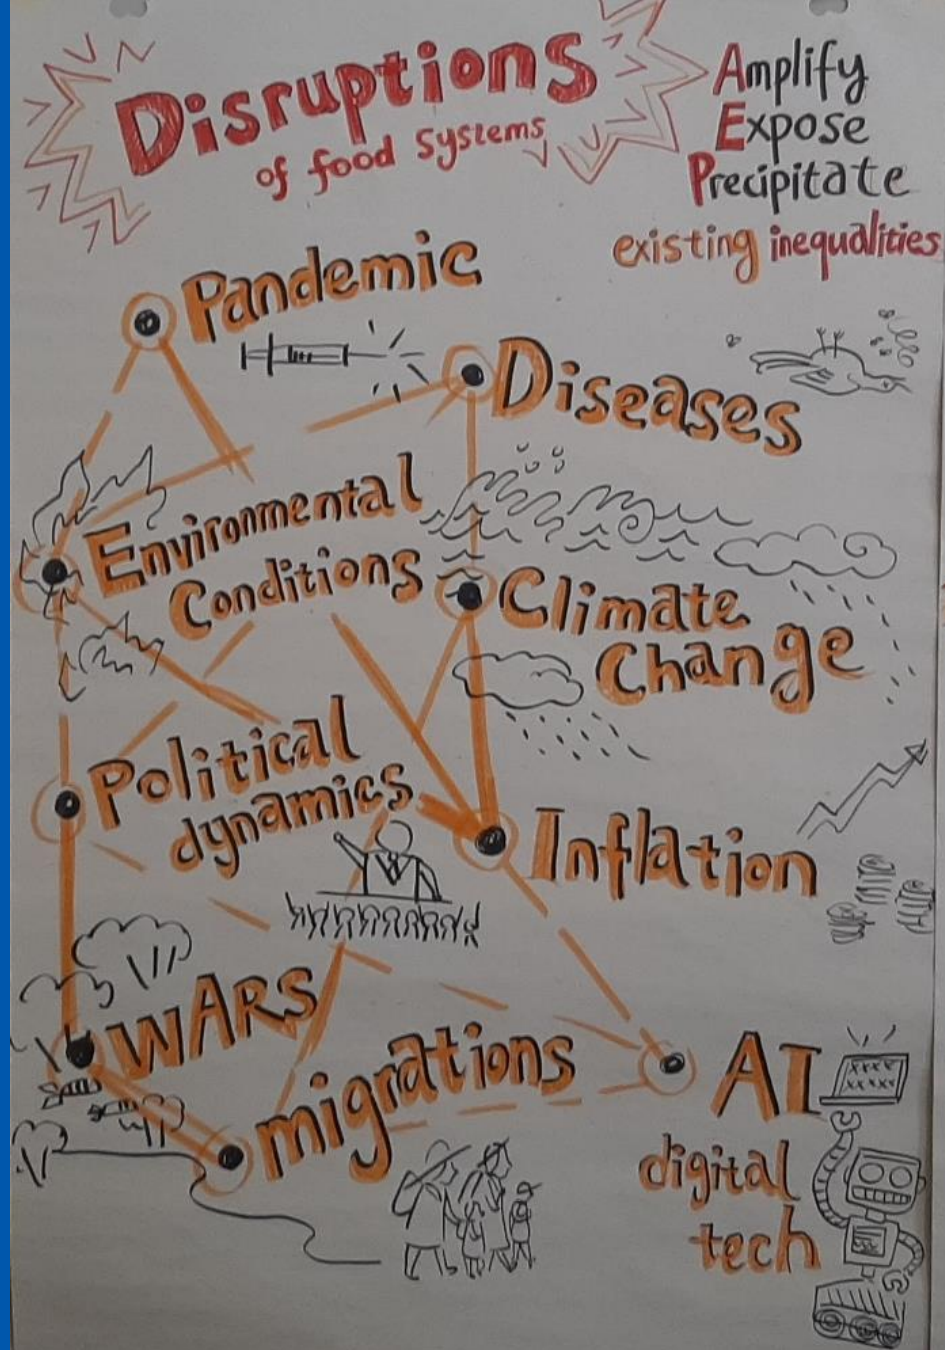 Disruptions
of food systems
Amplify
Expose
Precipitate
existing inequalities
Pandemic
Diseases
Environmental
Conditions
Climate
Change
Political
dynamics
Inflation
WARS
migrations
AI
digital
tech